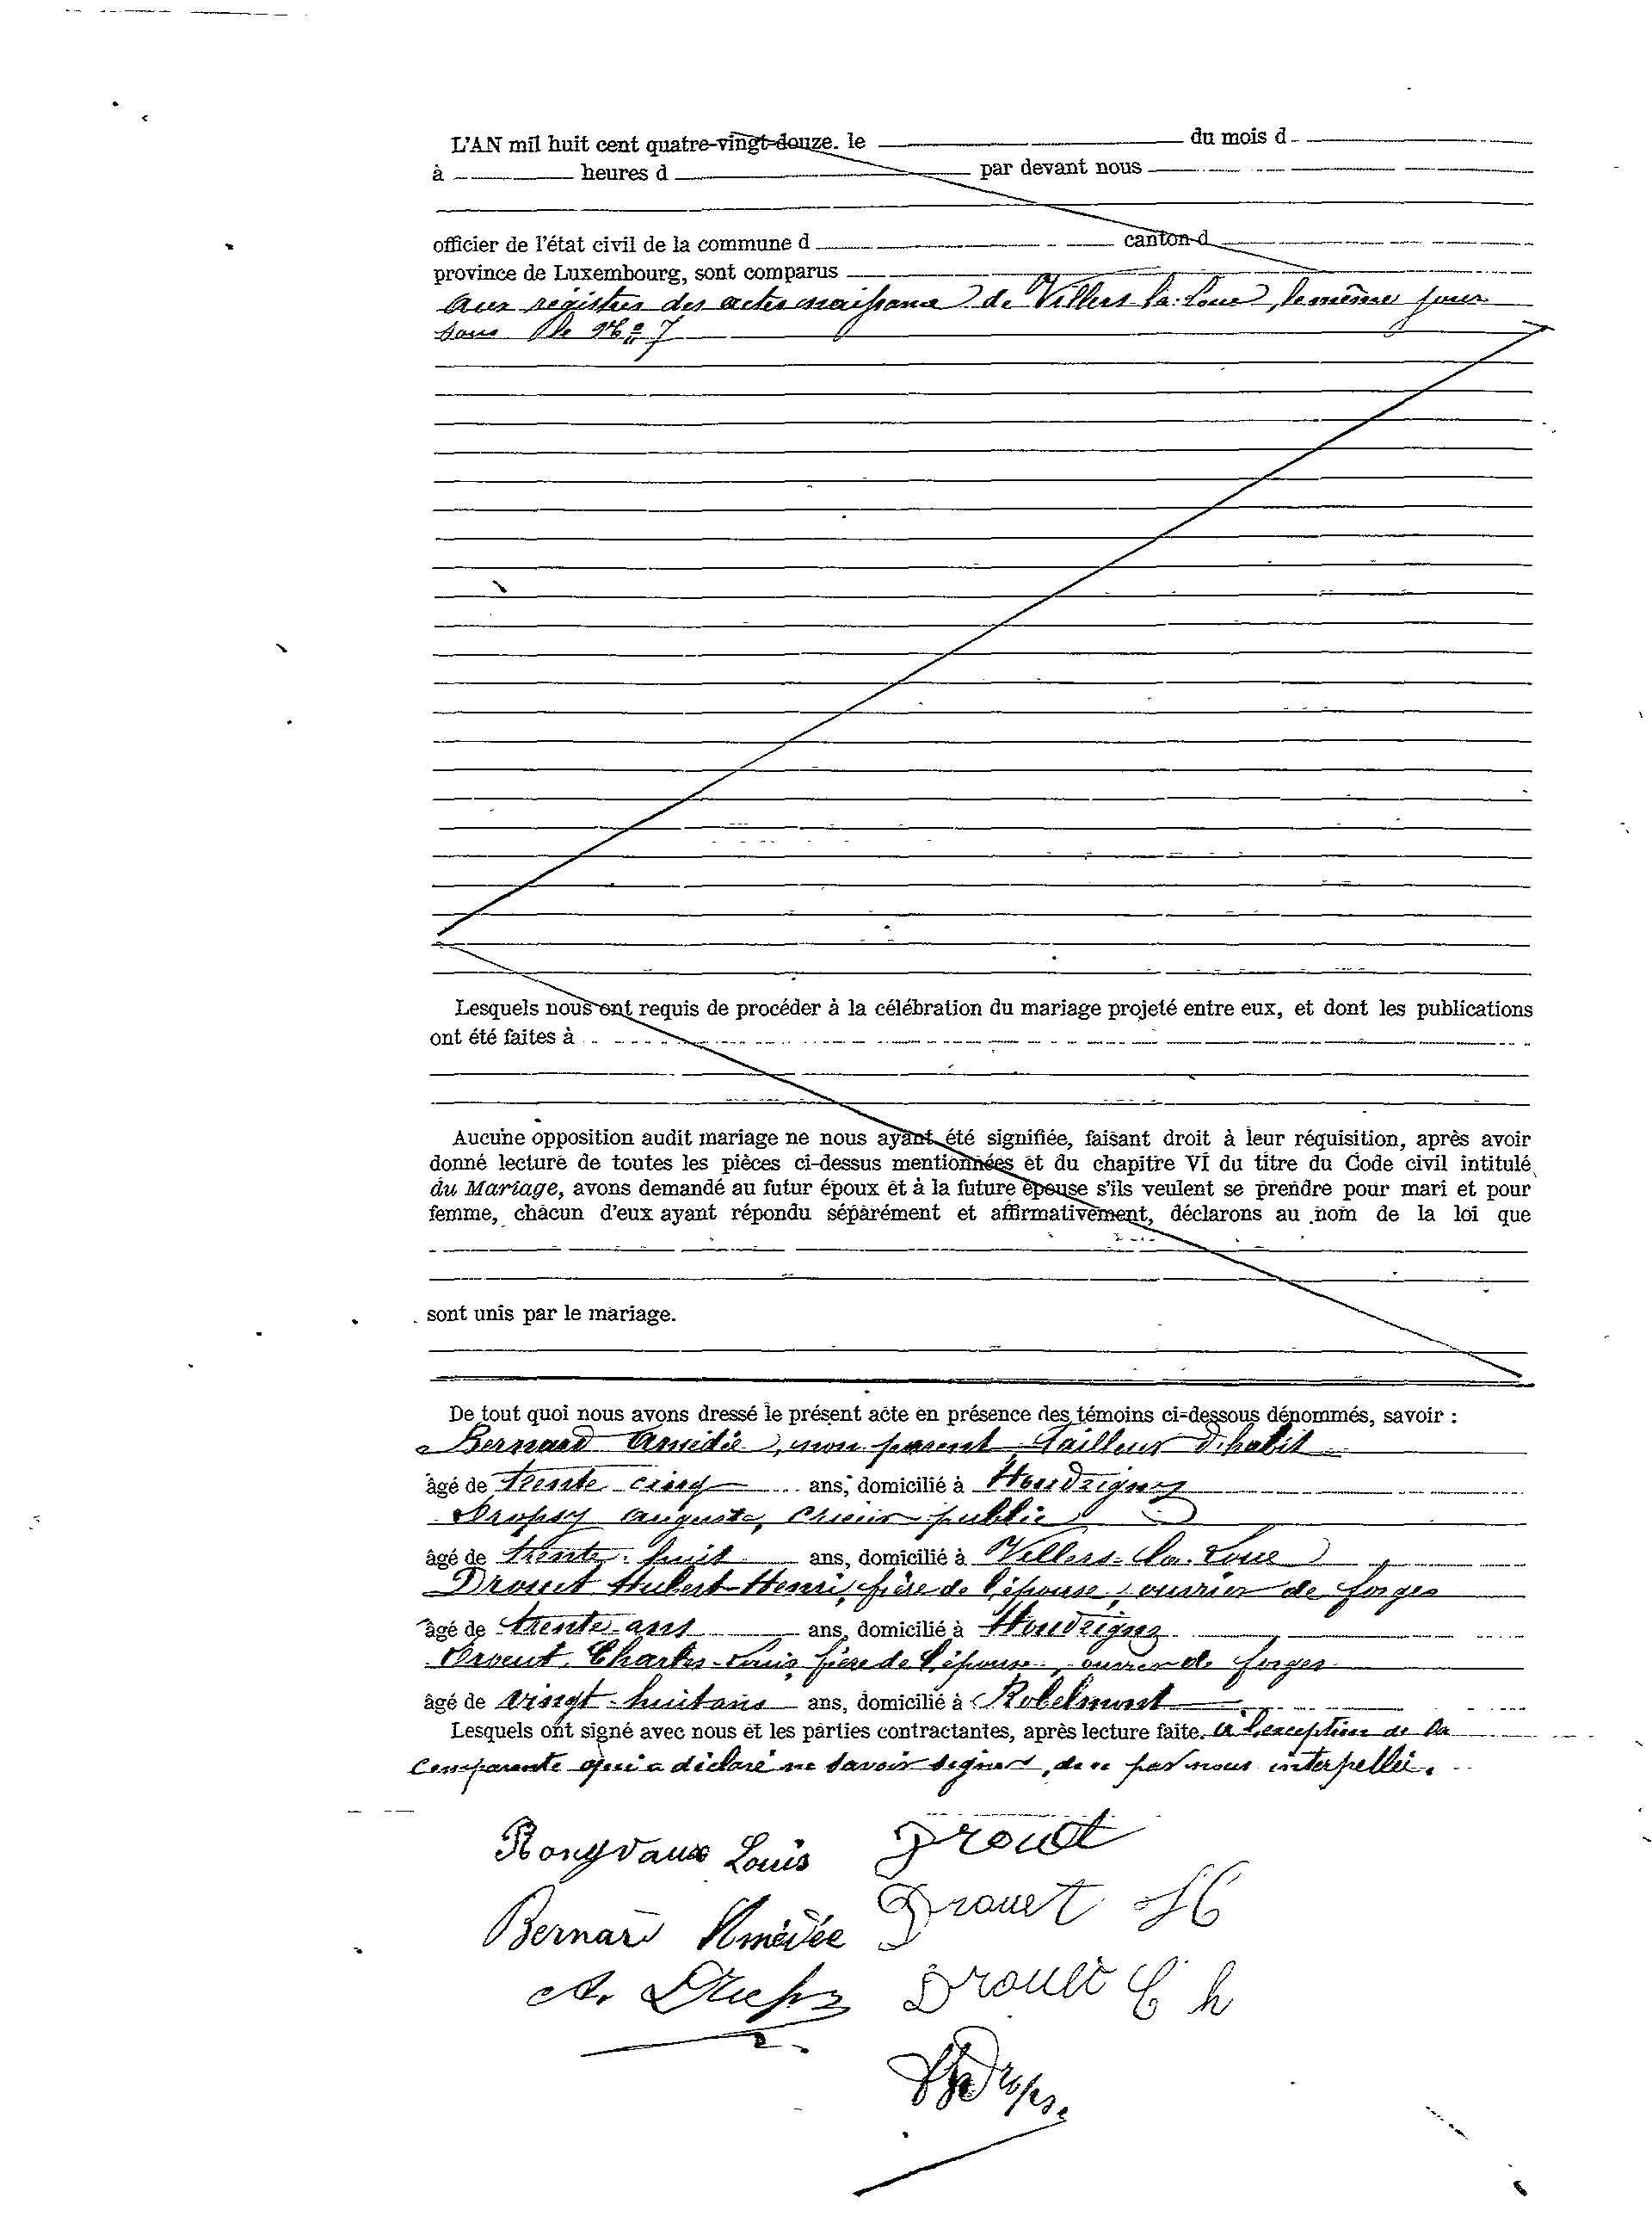 L'AN mil huit cent quatre-vingt-douze. le du mois d
à heures d par devant nous
officier de l'état civil de la commune d canton d
province de Luxembourg, sont comparus
aux registres des actes naissance de Villers-la-Loue, le même jour
sous le N° 7
Lesquels nous ont requis de procéder à la célébration du mariage projeté entre eux, et dont les publications
ont été faites à
Aucune opposition audit mariage ne nous ayant été signifiée, faisant droit à leur réquisition, après avoir
donné lecture de toutes les pièces ci-dessus mentionnées et du chapitre VI du titre du Code civil intitulé
du Mariage, avons demandé au futur époux et à la future épouse s'ils veulent se prendre pour mari et pour
femme, chacun d'eux ayant répondu séparément et affirmativement, déclarons au nom de la loi que
sont unis par le mariage.
De tout quoi nous avons dressé le présent acte en présence des témoins ci-dessous dénommés, savoir :
Bernard Amédée, non parent, tailleur d'habit
âgé de trente cinq ans, domicilié à Houdrigny
Dropsy Auguste, crieur public
âgé de trente-huit ans, domicilié à Villers-la-Loue
Drouet Hubert Henri, frère de l'épouse, ouvrier de forges
âgé de trente ans ans, domicilié à Houdrigny
Drouet Charles-Louis, frère de l'épouse, ouvrier de forges
âgé de vingt-huit ans ans, domicilié à Robelmont
Lesquels ont signé avec nous et les parties contractantes, après lecture faite. à l'exception de la
comparante qui a déclaré ne savoir signer, de ce par nous interpellée.
Rongvaux Louis Drouet
Bernard Amédée Drouet H
A. Dropsy Drouet Ch
Dropsy